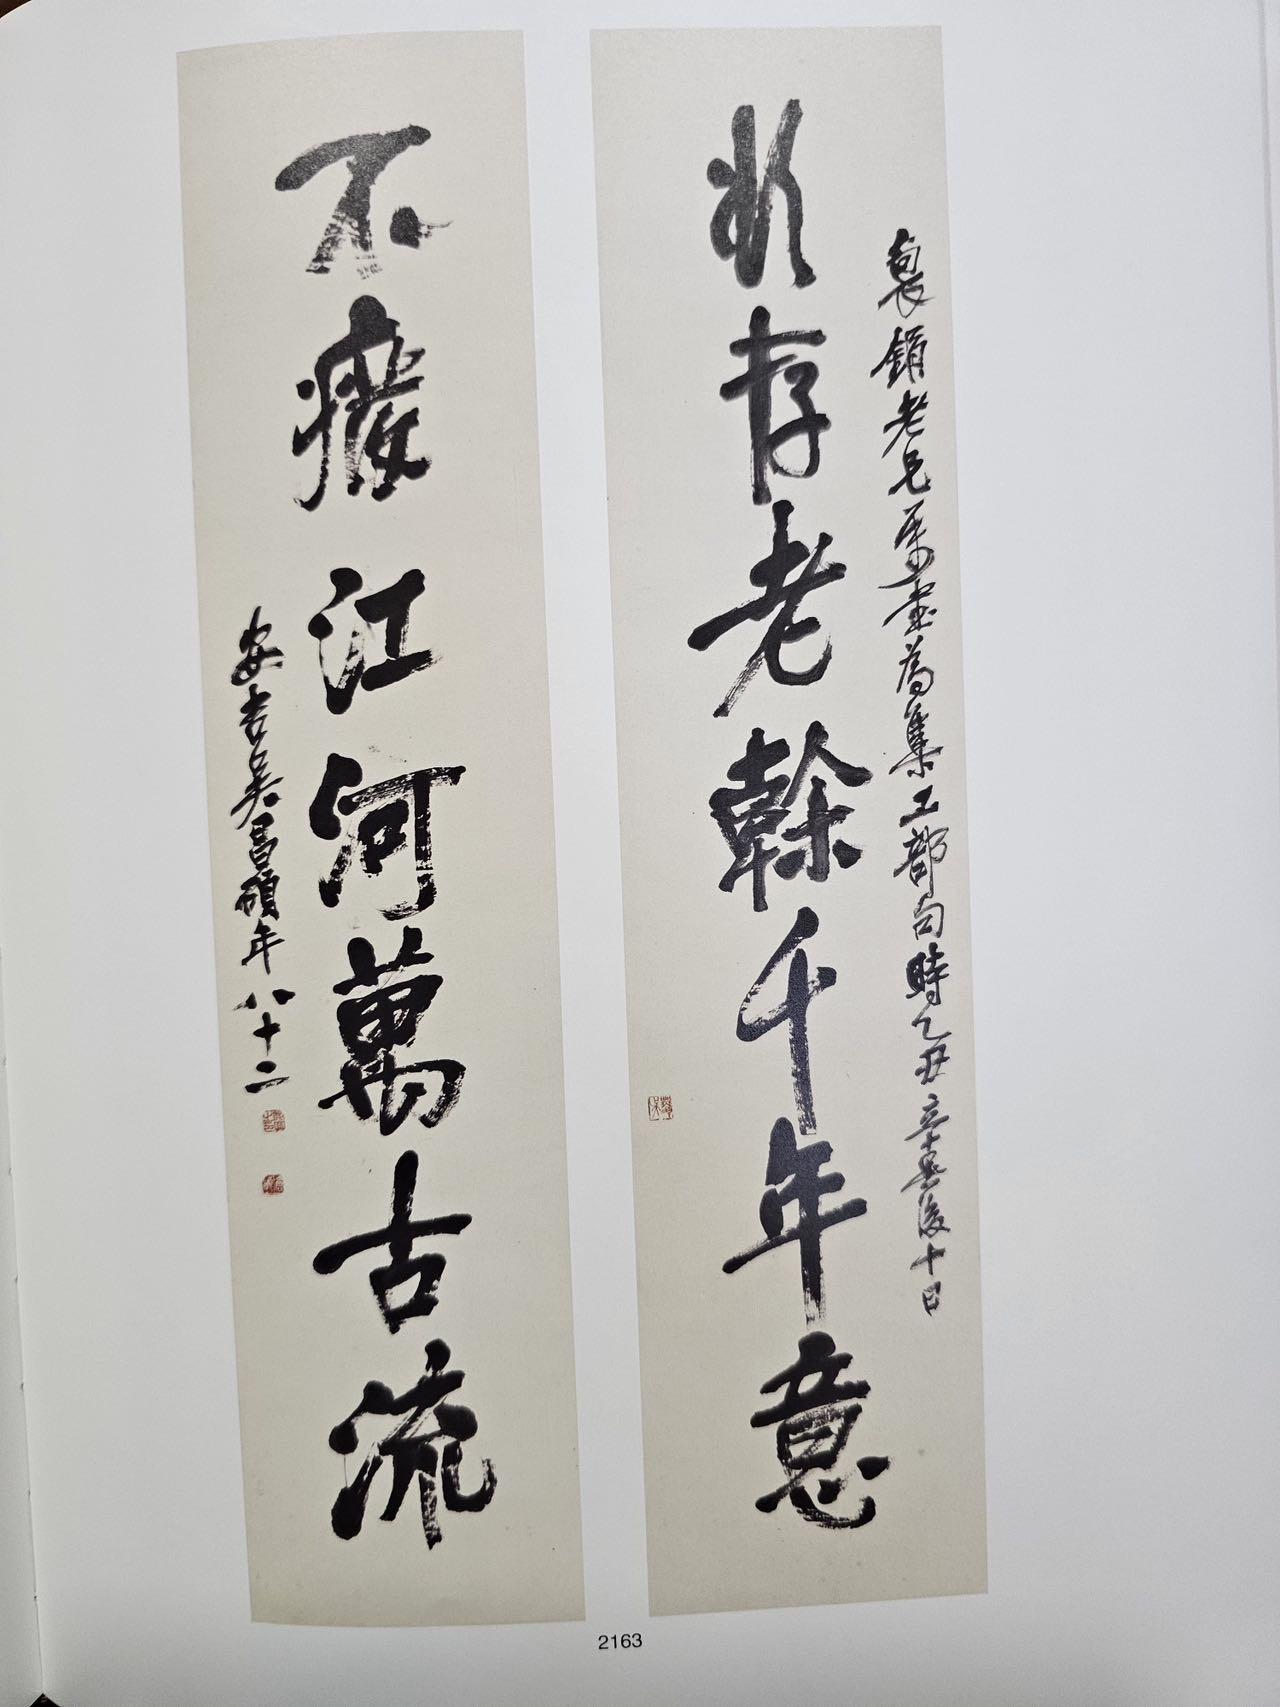 鋗老兄屬書為集工部句時乙丑立夏後十日
欲存老榦千年意
不廢江河萬古流
安吉吳昌碩年八十二
2163